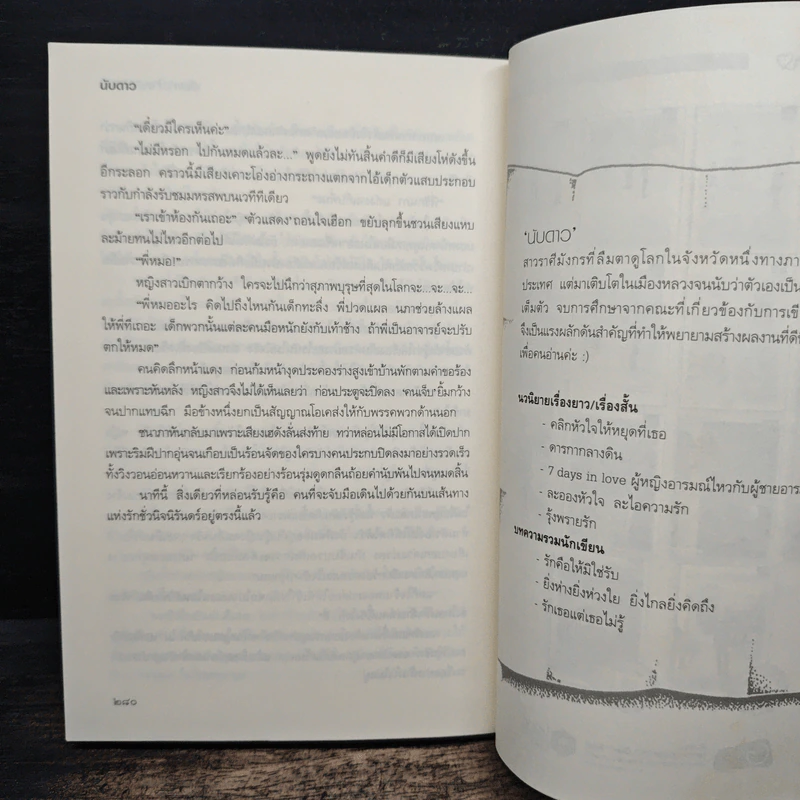 นับดาว
"เดี๋ยวมีใครเห็นค่ะ"
"ไม่มีหรอก ไปกันหมดแล้วละ..." พูดยังไม่ทันสิ้นคำดีก็มีเสียงโห่ดังขึ้น
อีกระลอก คราวนี้มีเสียงเคาะโอ่งอ่างกระถางแตกจากไอ้เด็กตัวแสบประกอบ
ราวกับกำลังรับชมมหรสพบนเวทีทีเดียว
"เราเข้าห้องกันเถอะ" 'ตัวแสดง' ถอนใจเฮือก ขยับลุกขึ้นชวนเสียงแหบ
ละม้ายทนไม่ไหวอีกต่อไป
"พี่หมอ!"
หญิงสาวเบิกตากว้าง ใครจะไปนึกว่าสุภาพบุรุษที่สุดในโลกจะ...จะ...จะ...
"พี่หมออะไร คิดไปถึงไหนกันเด็กทะลึ่ง พี่ปวดแผล นภาช่วยล้างแผล
ให้พี่ทีเถอะ เด็กพวกนั้นแต่ละคนมือหนักยังกับเท้าช้าง ถ้าพี่เป็นอาจารย์จะปรับ
ตกให้หมด"
คนคิดลึกหน้าแดง ก่อนก้มหน้างุดประคองร่างสูงเข้าบ้านพักตามคำขอร้อง
และเพราะหันหลัง หญิงสาวจึงไม่ได้เห็นเลยว่า ก่อนประตูจะปิดลง 'คนเจ็บ' ยิ้มกว้าง
จนปากแทบฉีก มือข้างหนึ่งยกเป็นสัญญาณโอเคส่งให้กับพรรคพวกด้านนอก
ชนาภาหันกลับมาเพราะเสียงเฮดังลั่นส่งท้าย ทว่าหล่อนไม่มีโอกาสได้เปิดปาก
เพราะริมฝีปากอุ่นจนเกือบเป็นร้อนจัดของใครบางคนประกบปิดลงมาอย่างรวดเร็ว
ทั้งวิงวอนอ่อนหวานและเรียกร้องอย่างร้อนรุ่มดูดกลืนถ้อยคำนับพันไปจนหมดสิ้น
นาทีนี้ สิ่งเดียวที่หล่อนรับรู้คือ คนที่จะจับมือเดินไปด้วยกันบนเส้นทาง
แห่งรักชั่วนิจนิรันดร์อยู่ตรงนี้แล้ว
๒๘๐
'นับดาว'
สาวราศีมังกรที่ลืมตาดูโลกในจังหวัดหนึ่งทางภา
ประเทศ แต่มาเติบโตในเมืองหลวงจนนับว่าตัวเองเป็น
เต็มตัว จบการศึกษาจากคณะที่เกี่ยวข้องกับการเขี
จึงเป็นแรงผลักดันสำคัญที่ทำให้พยายามสร้างผลงานที่ดีที
เพื่อคนอ่านค่ะ :)
นวนิยายเรื่องยาว/เรื่องสั้น
- คลิกหัวใจให้หยุดที่เธอ
- ดารกากลางดิน
- 7 days in love ผู้หญิงอารมณ์ไหวกับผู้ชายอาร
- ละอองหัวใจ ละไอความรัก
- รุ้งพรายรัก
บทความรวมนักเขียน
- รักคือให้มิใช่รับ
- ยิ่งห่างยิ่งห่วงใย ยิ่งไกลยิ่งคิดถึง
- รักเธอแต่เธอไม่รู้